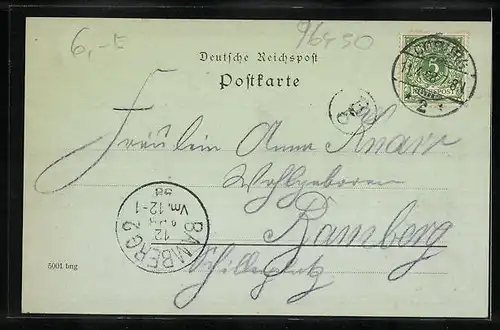 6,-E
96450
Deutsche Reichspost
Postkarte
5
Fräulein Anna Knarr
Wohlgeboren
Bamberg
Schillerplatz
BAMBERG 2
12
Vm. 12-1
98
5001 bng